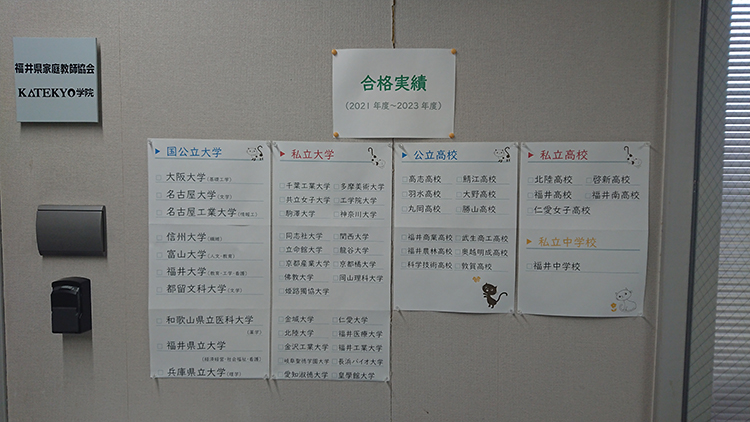 福井県家庭教師協会
KATEKYO学院
合格実績
(2021年度~2023年度)
▶ 国公立大学
□ 大阪大学(基礎工学)
□ 名古屋大学(文学)
□ 名古屋工業大学(情報工)
□ 信州大学(繊維)
□ 富山大学(人文・教育)
□ 福井大学(教育・工学・看護)
□ 都留文科大学(文学)
□ 和歌山県立医科大学
(薬学)
□ 福井県立大学
(経済経営・社会福祉・看護)
□ 兵庫県立大学(理学)
▶ 私立大学
□ 千葉工業大学 □ 多摩美術大学
□ 共立女子大学 □ 工学院大学
□ 駒澤大学 □ 神奈川大学
□ 同志社大学 □ 関西大学
□ 立命館大学 □ 龍谷大学
□ 京都産業大学 □ 京都橘大学
□ 佛教大学 □ 岡山理科大学
□ 姫路獨協大学
□ 金城大学 □ 仁愛大学
□ 北陸大学 □ 福井医療大学
□ 金沢工業大学 □ 福井工業大学
□ 岐阜聖徳学園大学 □ 長浜バイオ大学
□ 愛知淑徳大学 □ 皇學館大学
▶ 公立高校
□ 高志高校 □ 鯖江高校
□ 羽水高校 □ 大野高校
□ 丸岡高校 □ 勝山高校
□ 福井商業高校 □ 武生商工高校
□ 福井農林高校 □ 奥越明成高校
□ 科学技術高校 □ 敦賀高校
▶ 私立高校
□ 北陸高校 □ 啓新高校
□ 福井高校 □ 福井南高校
□ 仁愛女子高校
▶ 私立中学校
□ 福井中学校